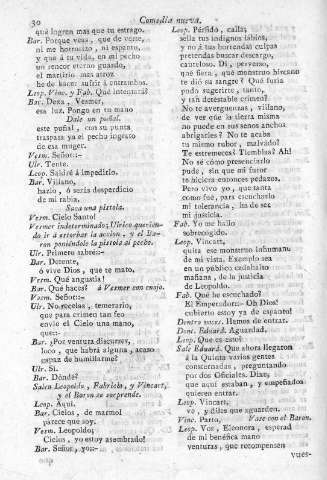 30 Comedia nueva.
que logren mas que tu estrago.
Bar. Porque veas, que de verte,
ni me horrorizo, ni espanto,
y que á tu vida, en mi pecho
un rencor eterno guardo,
el martirio mas atroz
he de hacer sufrir á entrambos.
Leop. Vinc. y Fab. Qué intentará?
Bar. Dexa, Vesmer,
esa luz. Pongo en tu mano
Dale un puñal.
este puñal, con su punta
traspasa ya el pecho ingrato
de esa muger.
Verm. Señor:-
Ulr. Tente.
Leop. Saldré á impedirlo.
Bar. Villano,
hazlo, ó serás desperdicio
de mi rabia.
Saca una pistola.
Verm. Cielo Santo!
Vermer indeterminado; Ulrico querien-
do ir á estorbar la accion, y el Ba-
ron poniéndole la pistola al pecho.
Ulr. Primero sabré:-
Bar. Detente,
ó vive Dios, que te mato.
Verm. Qué angustia!
Bar. Qué haces? á Vesmer con enojo.
Verm. Señor:-
Ulr. No recelas, temerario,
que para crímen tan feo
envie el Cielo una mano,
que:-
Bar. ¿Por ventura discurres,
loco, que habrá alguna, acaso
capaz de humillarme?
Ulr. Sí.
Bar. Dónde?
Salen Leopoldo, Fabricio, y Vincart,
y el Baron se sorprende.
Leop. Aquí.
Bar. Cielos, de marmol
parece que soy.
Verm. Leopoldo;
Cielos, yo estoy asombrado!
Bar. Señor, yo:-
Leop. Pérfido, calla;
sella tus indignos labios,
y no á tus horrendas culpas
pretendas buscar descargo,
cauteloso. Di, perverso,
qué fiera, qué monstruo hircano
te dió su sangre? Qué furia
pudo sugerirte, tanto,
y tan detestable crímen?
No te avergüenzas, villano,
de ver que la tierra misma
no puede en sus senos anchos
abrigarles? No te acaba
tu mismo rubor, malvado?
Te estremeces? Tiemblas? Ah!
No sé cómo presenciarlo
pude, sin que mi furor
te hiciera entonces pedazos.
Pero vivo yo, que tanta
como fué, para escucharlo
mi tolerancia, ha de ser
mi justicia.
Fab. Yo me hallo
sobrecogido.
Leop. Vincart,
quita ese monstruo inhumano
de mi vista. Exemplo sea
en un público cadahalso
mañana, de la justicia
de Leopoldo.
Fab. Qué he escuchado?
El Emperador:- Oh Dios!
cubierto estoy ya de espanto!
Dentro voces. Hemos de entrar.
Dent. Eduard. Aguardad.
Leop. Qué es esto?
Sale Eduard. Que ahora llegaron
á la Quinta varias gentes
consternadas, preguntando
por dos Oficiales. Dixe,
que aquí estaban, y empeñados
quieren entrar.
Leop. Vincart,
ve, y díles que aguarden.
Vinc. Parto, Vase con el Baron.
Leop. Vos, Eleonora, esperad
de mi benéfica mano
venturas, que recompensen
vues-